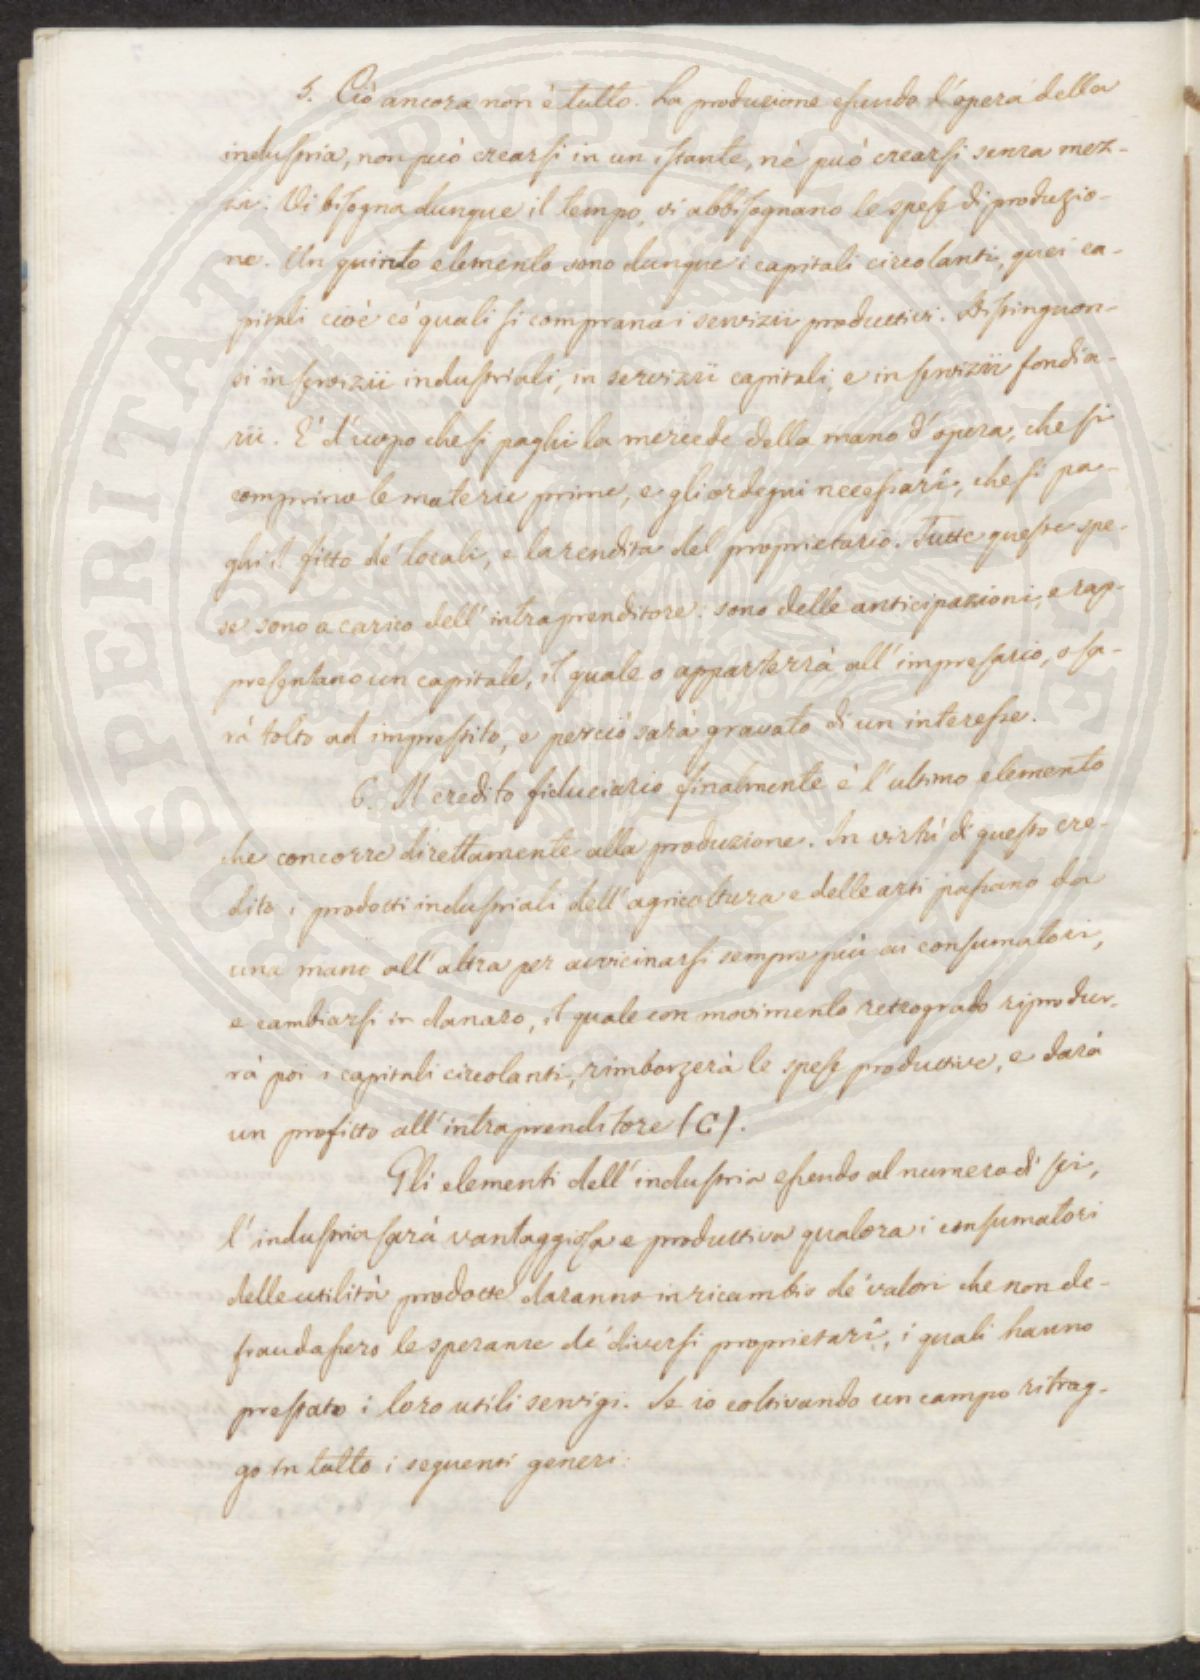 5. Ciò ancora non è tutto. La produzione essendo l'opera della
industria, non può crearsi in un istante, nè può crearsi senza mez-
zi. Vi bisogna dunque il tempo, vi abbisognano le spese di produzio-
ne. Un quinto elemento sono dunque i capitali circolanti, quei ca-
pitali cioè co' quali si comprano i servizii produttivi. Distinguon-
si in servizii industriali, in servizii capitali, e in servizii fondia-
rii. E' d'uopo che si paghi la mercede della mano d'opera, che si
comprino le materie prime, e gli ordegni necessarî, che si pa-
ghi il fitto de' locali, e la rendita del proprietario. Tutte queste spe-
se sono a carico dell'intraprenditore: sono delle anticipazioni, e rap-
presentano un capitale, il quale o apparterrà all'impresario, o sa-
rà tolto ad imprestito, e perciò sarà gravato di un interesse.
6. Il credito fiduciario finalmente è l'ultimo elemento
che concorre direttamente alla produzione. In virtù di questo cre-
dito i prodotti industriali dell'agricoltura e delle arti passano da
una mano all'altra per avvicinarsi sempre più ai consumatori,
e cambiarsi in danaro, il quale con movimento retrogrado riprodur-
rà poi i capitali circolanti, rimborzerà le spese produttive, e darà
un profitto all'intraprenditore (C).
Gli elementi dell'industria essendo al numero di sei,
l'industria sarà vantaggiosa e produttiva qualora i consumatori
delle utilità prodotte daranno in ricambio de' valori che non de-
fraudassero le speranze de' diversi proprietarî, i quali hanno
prestato i loro utili servigi. Se io coltivando un campo ritrag-
go in tutto i seguenti generi: